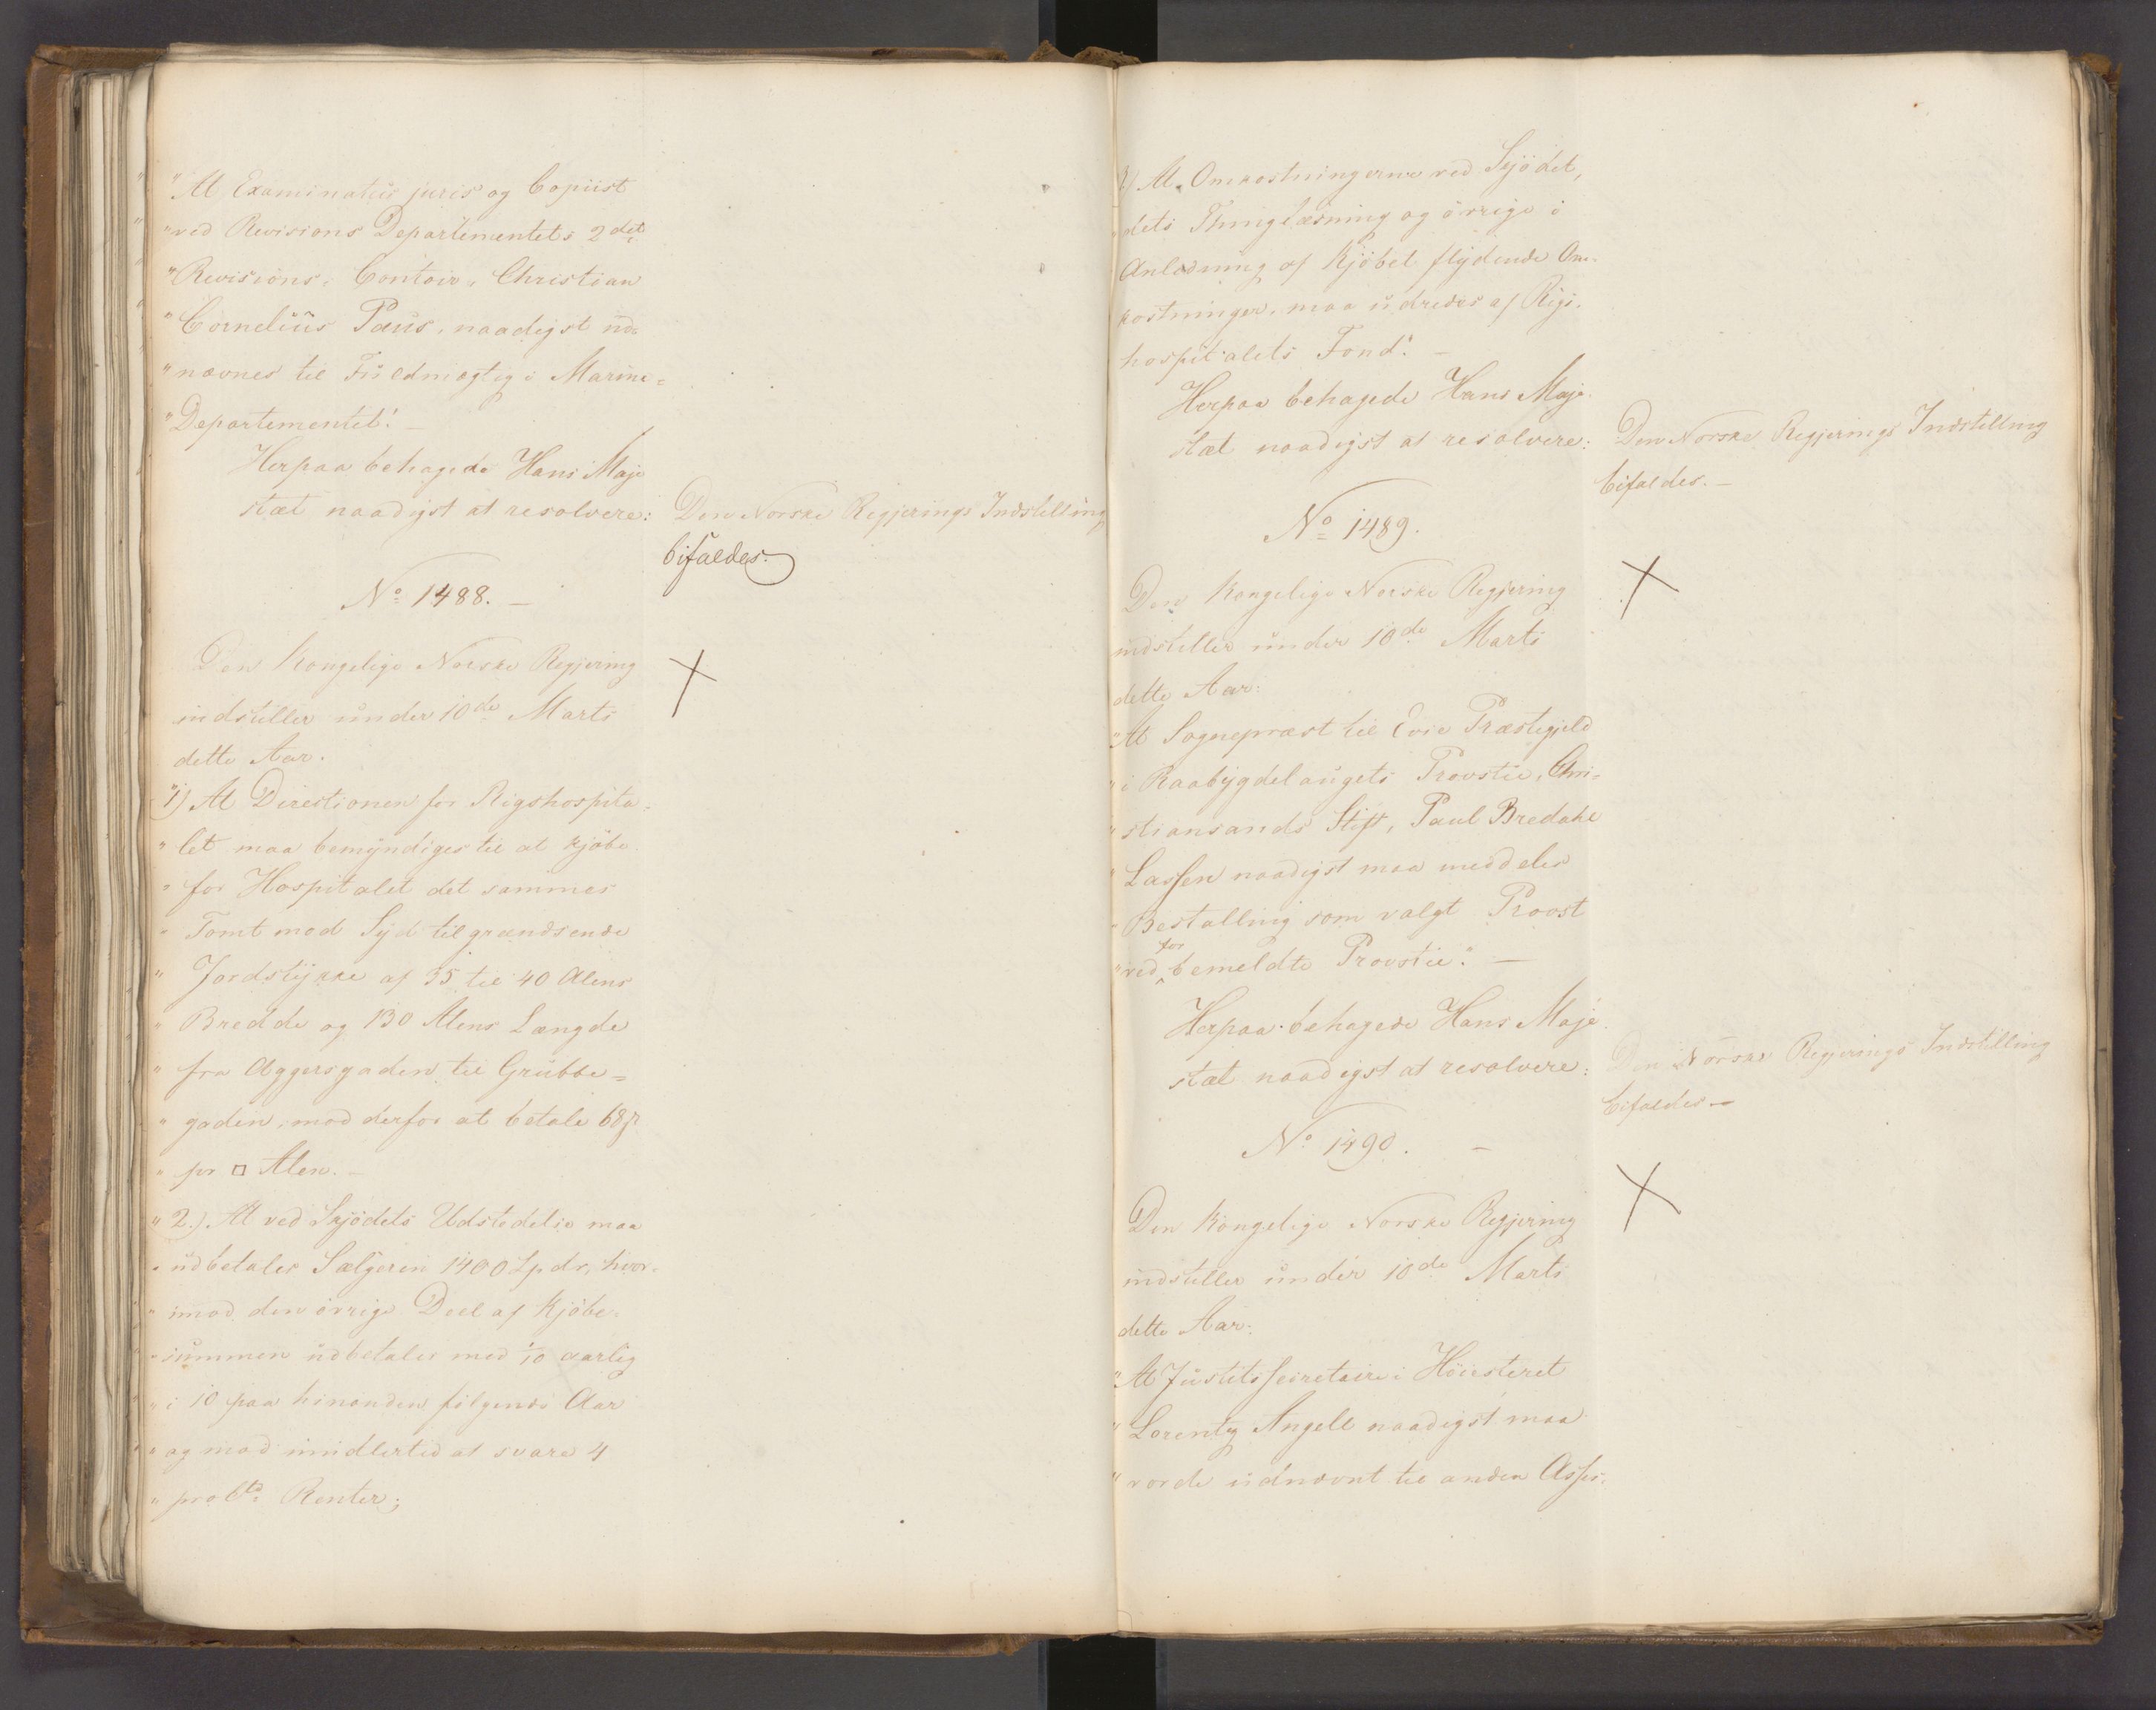 "At Examinatus juris og Copiist
"ved Revisions Departementets 2det
"Revisions-Contoir, Christian
"Cornelius Paus, naadigst ud-
"nævnes til Fuldmægtig i Marine-
"Departementet".—
Herpaa behagede Hans Maje
stæt naadigst at resolvere:
Den Norske Regjerings Indstilling
bifaldes.
No 1488.—
Den Kongelige Norske Regjering
indstiller under 10de Marts
dette Aar.
"1) At Directionen for Rigshospita-
"let maa bemyndiges til at kjöbe
"for Hospitalet det sammes
"Tomt mod Syd tilgrændsende
"Jordstykke af 35 til 40 Alens
"Bredde og 130 Alens Længde
"fra Aggersgaden til Grubbe-
"gaden, mod derfor at betale 68 ß
"pr □ Alen.—
"2.) At ved Skjödets Udstedelse maa
"udbetales Sælgeren 1400 Spdr, hvor-
"imod den övrige Deel af Kjöbe-
"summen udbetales med 1/10 aarlig
"i 10 paa hinanden fölgende Aar
"og mod imidlertid at svare 4
"proCto Renter;
3) At Omkostningerne ved Skjödet,
"dets Thinglæsning og övrige i
Anledning af Kjöbet flydende Om-
kostninger, maa udredes af Rigs-
hospitalets Fond".—
Herpaa behagede Hans Maje-
stæt naadigst at resolvere:
Den Norske Regjerings Indstilling
bifaldes.—
No 1489.
Den Kongelige Norske Regjering
indstiller under 10de Marts
dette Aar:
"At Sognepræst til Evie Præstegjeld
"i Raabygdelaugets Provstie, Chri-
"stiansands Stift, Paul Bredahl
"Lassen naadigst maa meddeles
"Bestalling som valgt Provst
for
"ved bemeldte Provstie".—
Herpaa behagede Hans Maje-
stæt naadigst at resolvere:
Den Norske Regjerings Indstilling
bifaldes—
No 1490. —
Den Kongelige Norske Regjering
indstiller under 10de Marts
dette Aar:
"At Justitssecretaire i Höiesteret
"Lorentz Angell naadigst maa
"vorde udnævnt til anden Asses-